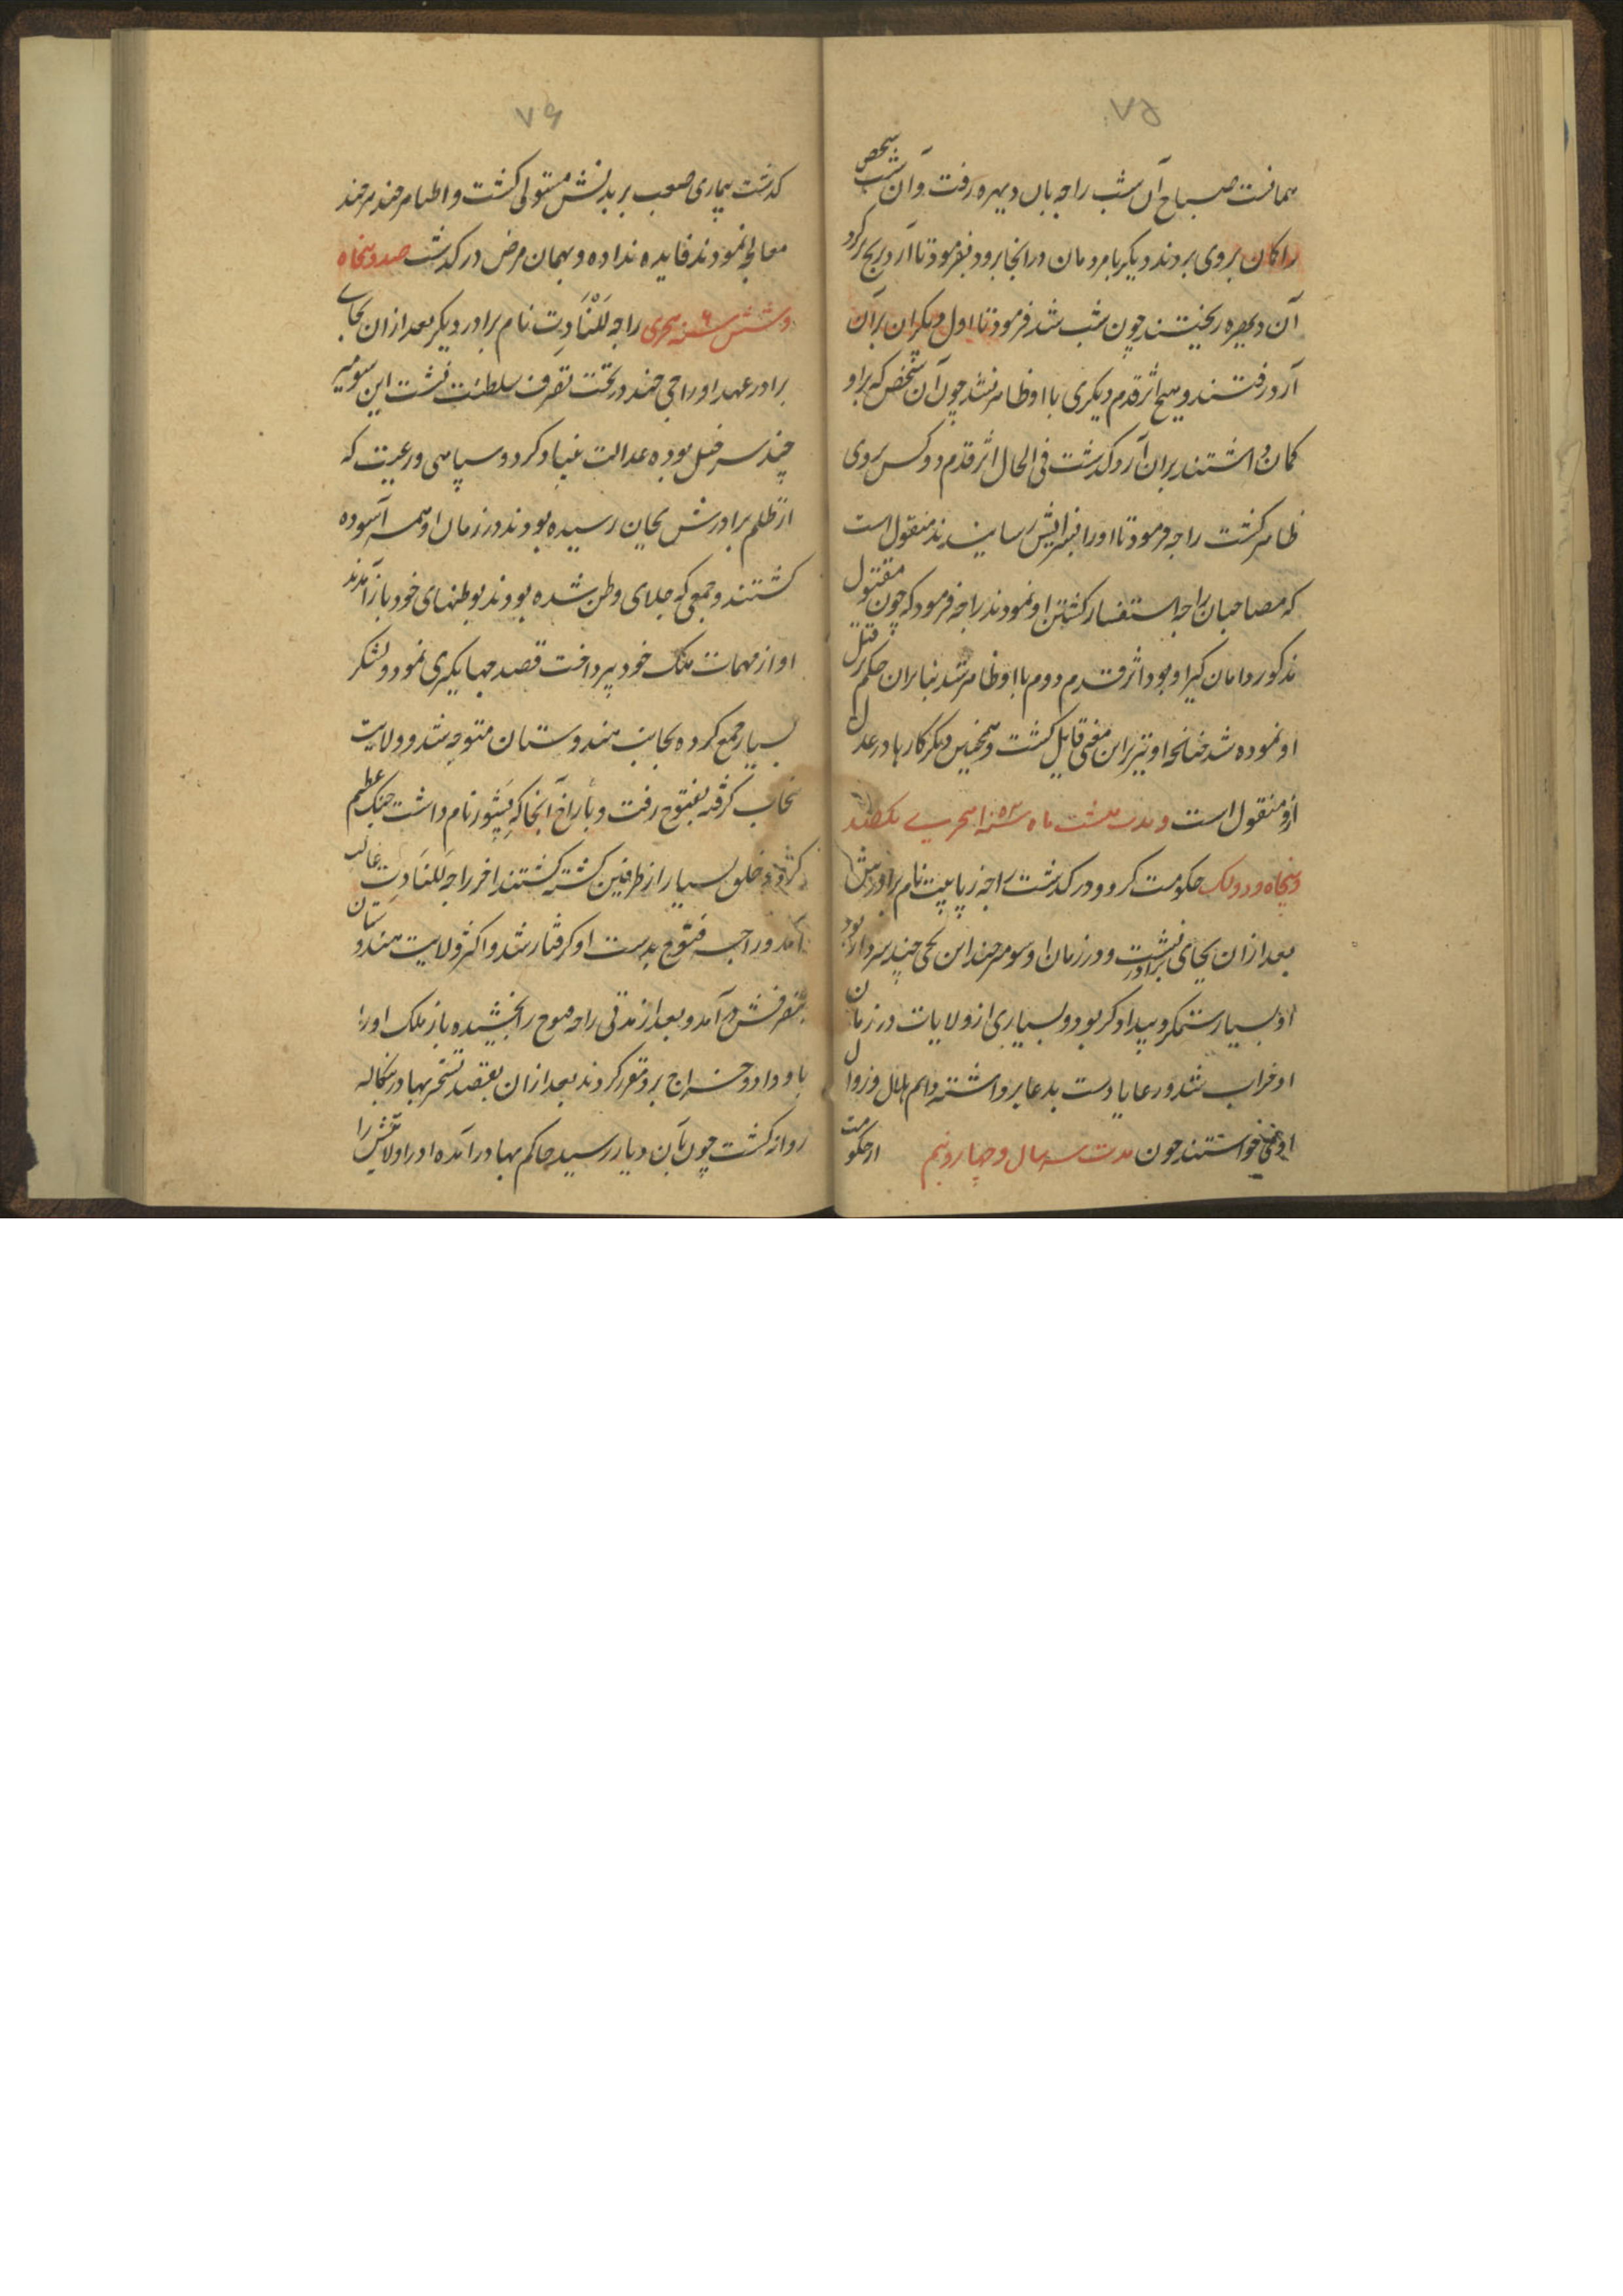 ۷۵
همانست صباح آن شب راجه بان دیهره رفت و آن شب شخص
را کان بروی بردند دیگر با مردمان در آنجا برود بفرمود تا آرد برنج بر کرد
آن دیهره ریختند چون شب شد فرمود تا اول دیگران بر آن
آرد رفتند و هیچ اثر قدم دیگری با او ظاهر نشد چون آن شخص که بر او
کمان داشتند بران آرد گذشت فی الحال اثر قدم دو کس بروی
ظاهر گشت راجه فرمود تا او را بسزایش رسانیدند منقول است
که مصاحبان راجه استفسار کشتن او نمودند راجه فرمود که چون مقتول
مذکور دامان گیر او بود اثر قدم دوم با او ظاهر شد بنابران حکم بر قتل
او نموده شد چنانچه او نیز براین معنی قایل گشت و همچنین دیگر کارها در عدل
ازو منقول است و مدت هشت ماه سنه ۱۵۲ هجری یکصد
و پنجاه و دو لک حکومت کرد و درگذشت راجه ناراپیت نام برادرش
بعد ازان بجای برادر نشست و در زمان او سومر چند ابن نجی چند سردار بود
او بسیار ستمگر و بیدادگر بود و بسیاری از ولایات در زمان
او خراب شد و رعایا دست بدعا برداشته دایم هلاک و زوال
او می خواستند چون مدت سه سال و چهار و نیم از حکومت
۷۶
گذشت بیماری صعب بر بدنش مستولی گشت و اطبا هر چند هر چند
معالجه نمودند فایده نداده و بهمان مرض درگذشت صد و پنجاه
و شش سنه ۱۵۶ هجری راجه للنادت نام برادر دیگر بعد ازان بجای
برادر عهد او راجی چند در تخت تصرف سلطنت نشست ابن سومیر
چند سر خیل بوده عدالت بنیاد کرد و سپاهی و رعیت که
از ظلم برادرش بجان رسیده بودند در زمان او همه آسوده
گشتند و جمعی که جلای وطن شده بودند بوطنهای خود باز آمدند
او از مهمات ملک خود پرداخت قصد جهانگیری نمود و لشکر
بسیار جمع کرده بجانب هندوستان متوجه شد و ولایت
پنجاب گرفته بقنوج رفت و با راج آنجا که نام داشت جنگ عظیم
کرد و خلق بسیار از طرفین کشته گشتند اخر راجه للنادت غالب
آمد و راجه قنوج بدست او گرفتار شد و اکثر ولایت هندوستان
بتصرفش در آمد و بعد از مدتی راجه قنوج را بخشیده باز ملک او را
باو داد و خراج برو مقرر کردند بعد ازان بقصد تسخیر بهادر بنگاله
روانه گشت چون بآن دیار رسید حاکم بهادر آمده او را ولایتش را